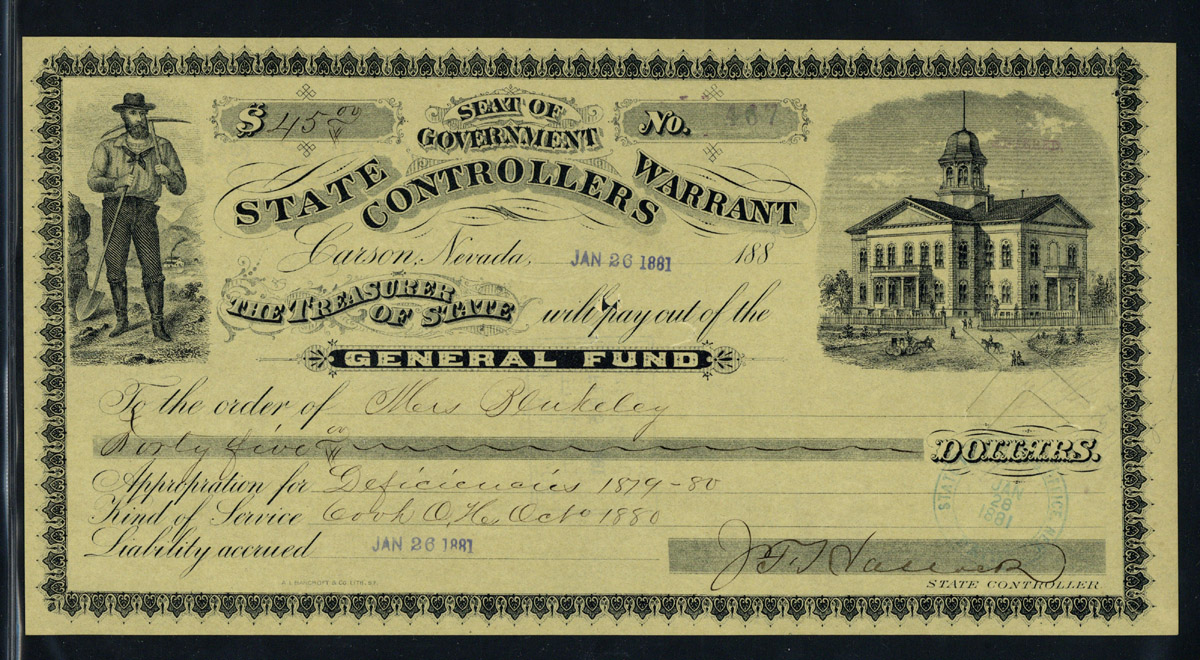 $ 45 00
SEAT OF GOVERNMENT
No. 467
STATE CONTROLLERS WARRANT
Carson, Nevada, JAN 26 1881 188
THE TREASURER OF STATE will pay out of the
GENERAL FUND
To the order of Mrs Blakeley
Forty five 00 DOLLARS.
Appropration for Deficiencies 1879-80
Kind of Service Cook O. H. Oct 1880
Liability accrued JAN 26 1881
STATE CONTROLLER
A. L. BANCROFT & CO. LITH. S.F.